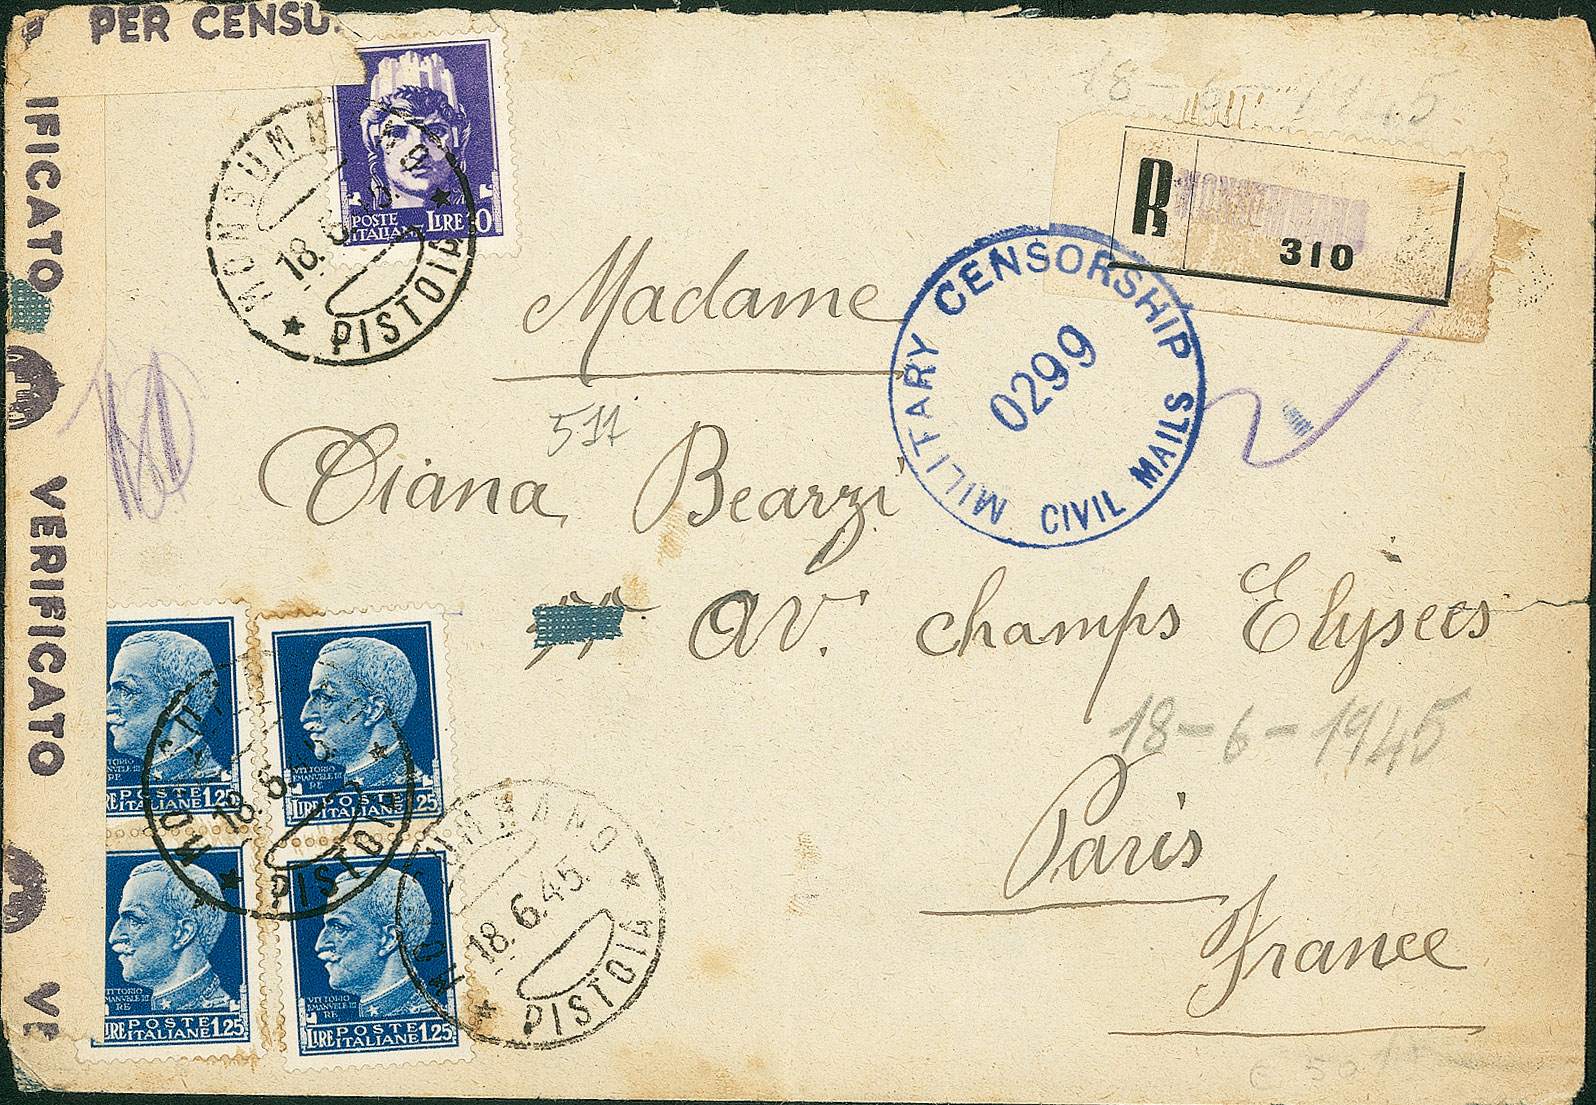 PER CENSU
IFICATO
VERIFICATO
VE
POSTE
ITALIANE LIRE 0
MONSUMMANO
18.6.45.
PISTOIA
18-6-1945
R
310
MILITARY CENSORSHIP
0299
CIVIL MAILS
Madame
511
Diana Bearzi
AV. Champs Elysees
18-6-1945
Paris
France
VITTORIO
EMANVELE III
RE
LIRE POSTE ITALIANE 1.25
VITTORIO
EMANVELE III
RE
LIRE POSTE ITALIANE 1.25
VITTORIO
EMANVELE III
RE
LIRE POSTE ITALIANE 1.25
VITTORIO
EMANVELE III
RE
LIRE POSTE ITALIANE 1.25
MONSUMMANO
18.6.45.
PISTOIA
MONSUMMANO
18.6.45.
PISTOIA